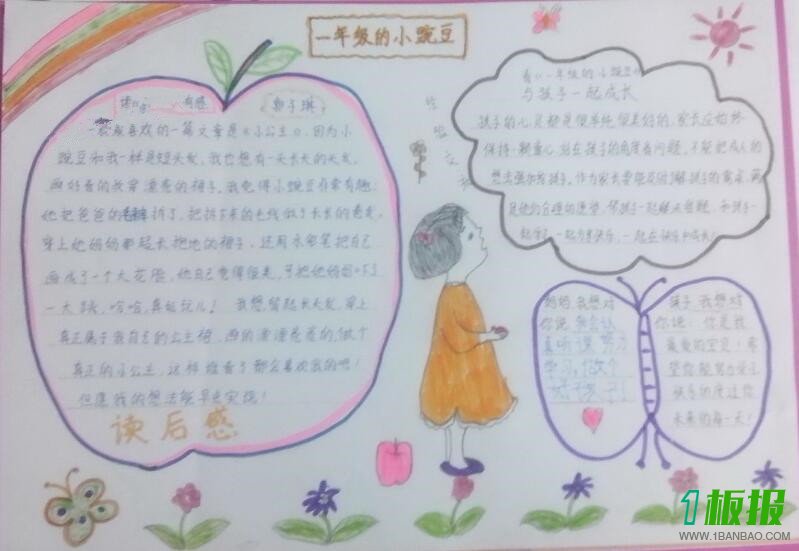 一年级的小豌豆
有感
郭子琪
我最喜欢的一篇文章是《小公主》,因为小
豌豆和我一样是短头发,我也想有一头长长的头发,
画好看的妆穿漂亮的裙子,我觉得小豌豆非常有趣:
她把爸爸的毛裤拆了,把拆下来的毛线做了长长的卷发,
穿上她妈妈那超长拖地的裙子,还用水彩笔把自己
画成了一个大花脸,她自己觉得很美,可把她妈妈吓
一大跳,哈哈,真好玩儿!我想留起长头发,穿上
真正属于我自己的公主裙,画的漂漂亮亮的,做个
真正的小公主,这样谁看了都会喜欢我的吧!
但愿我的想法能早点实现!
读后感
看《一年级的小豌豆》
与孩子一起成长
孩子的心灵都是很单纯很美好的,家长应始终
保持一颗童心,站在孩子的角度看问题,不能把成人的
想法强加给孩子。作为家长要能及时了解孩子的需求,满
足他们合理的愿望,帮孩子一起解决难题,和孩子一
起学习,一起分享快乐,一起在快乐中成长。
妈妈,我想对
你说:我会认
真听课,努力
学习,做个
好孩子!
孩子,我想对
你说:你是我
最爱的宝贝!希
望你能努力学习
快乐的度过你
未来的每一天!
1板报
WWW.1BANBAO.COM